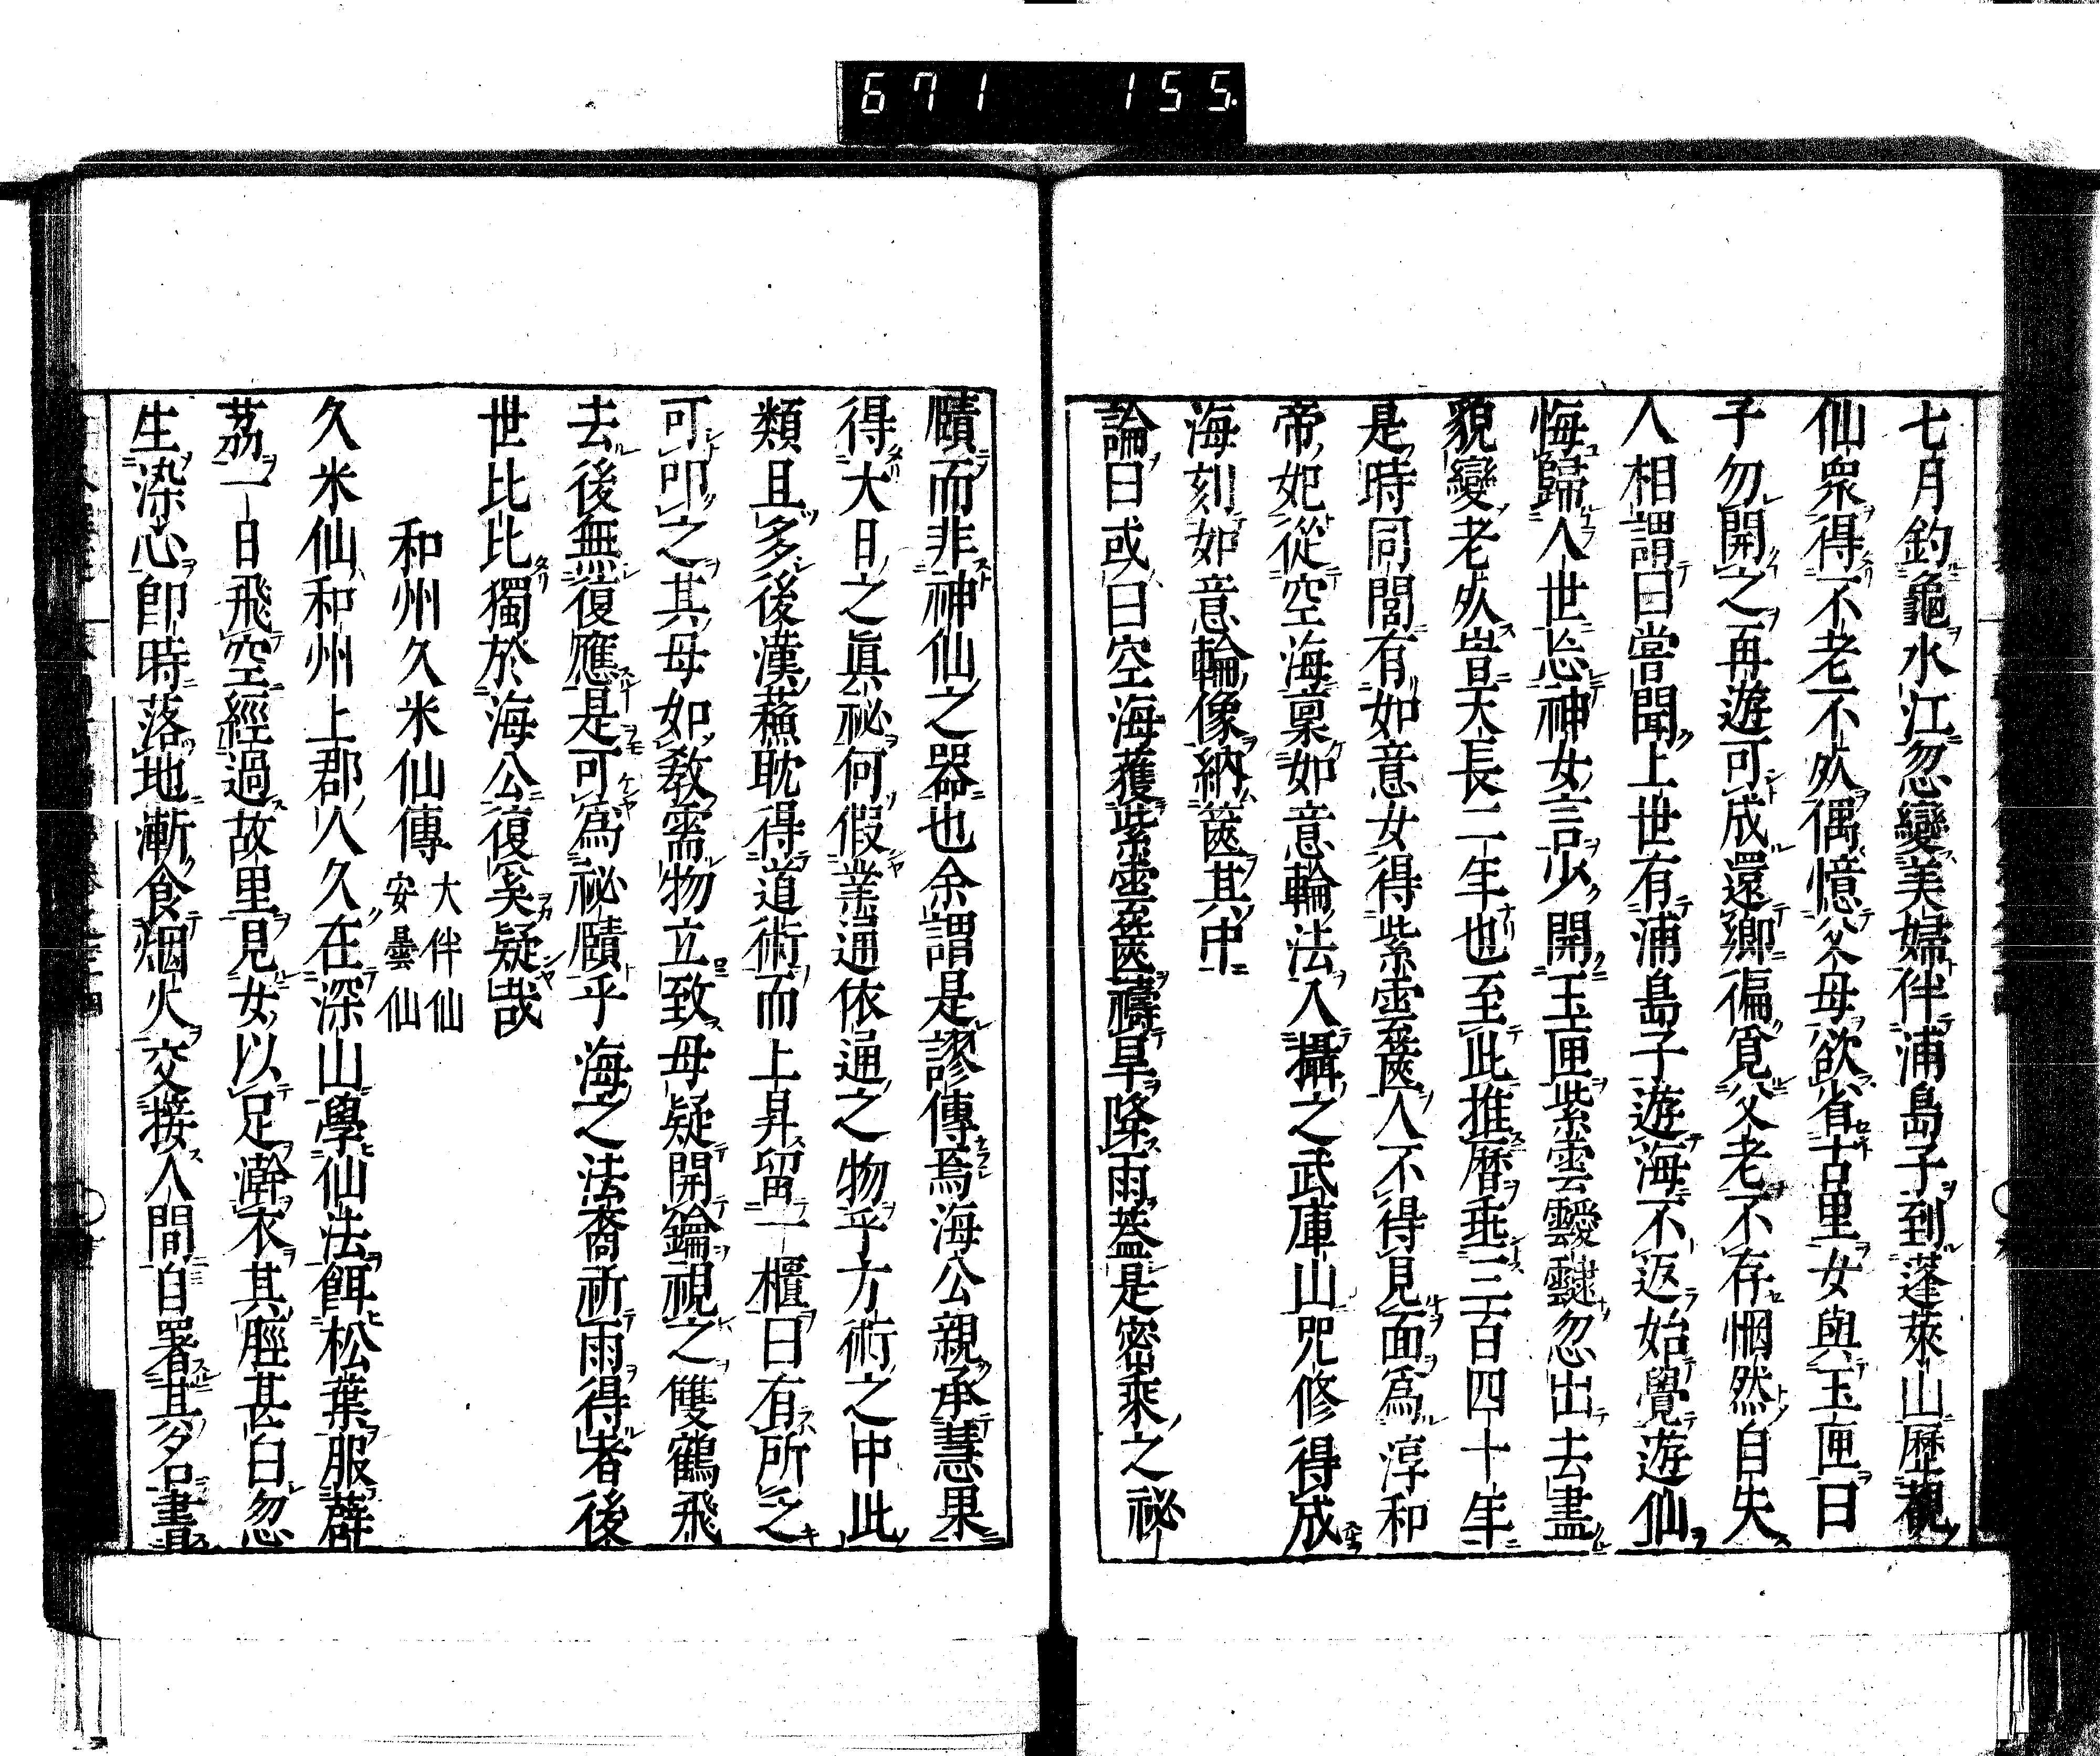 671 155.
七月釣龜水江忽變美婦伴浦島子到蓬萊山歷覩
仙衆得不老不㱕偶憶父母欲省古里女與玉匣曰
子勿開之再遊可成還鄉徧覓父老不存惘然自失
人相謂曰嘗聞上世有浦島子遊海不返始覺遊仙
悔歸人世忘神女言少開玉匣紫雲靉靆忽出去盡
貌變老㱕皆天長二年也至此推曆垂三百四十年
是時同閭有如意女得紫雲篋人不得見面爲淳和
帝妃從空海稟如意輪法入攝之武庫山咒修得成
海刻如意輪像納篋其中
論曰或曰空海獲紫雲篋禱旱降雨蓋是密乘之祕
賾而非神仙之器也余謂是謬傳焉海公親承慧果
得大日之眞祕何假業通依通之物乎方術之中此
類且多後漢蘓耽得道術而上昇留一櫃曰有所乏
可叩之其母如教需物立致母疑開鑰視之雙鶴飛
去後無復應是可爲祕賾乎海之法裔祈雨得者後
世比比獨於海公復奚疑哉
和州久米仙傳 大伴仙 安曇仙
久米仙和州上郡人久在深山學仙法餌松葉服薜
荔一日飛空經過故里見女以足澣衣其脛甚白忽
生染心即時落地漸食烟火交接人間自署其名書